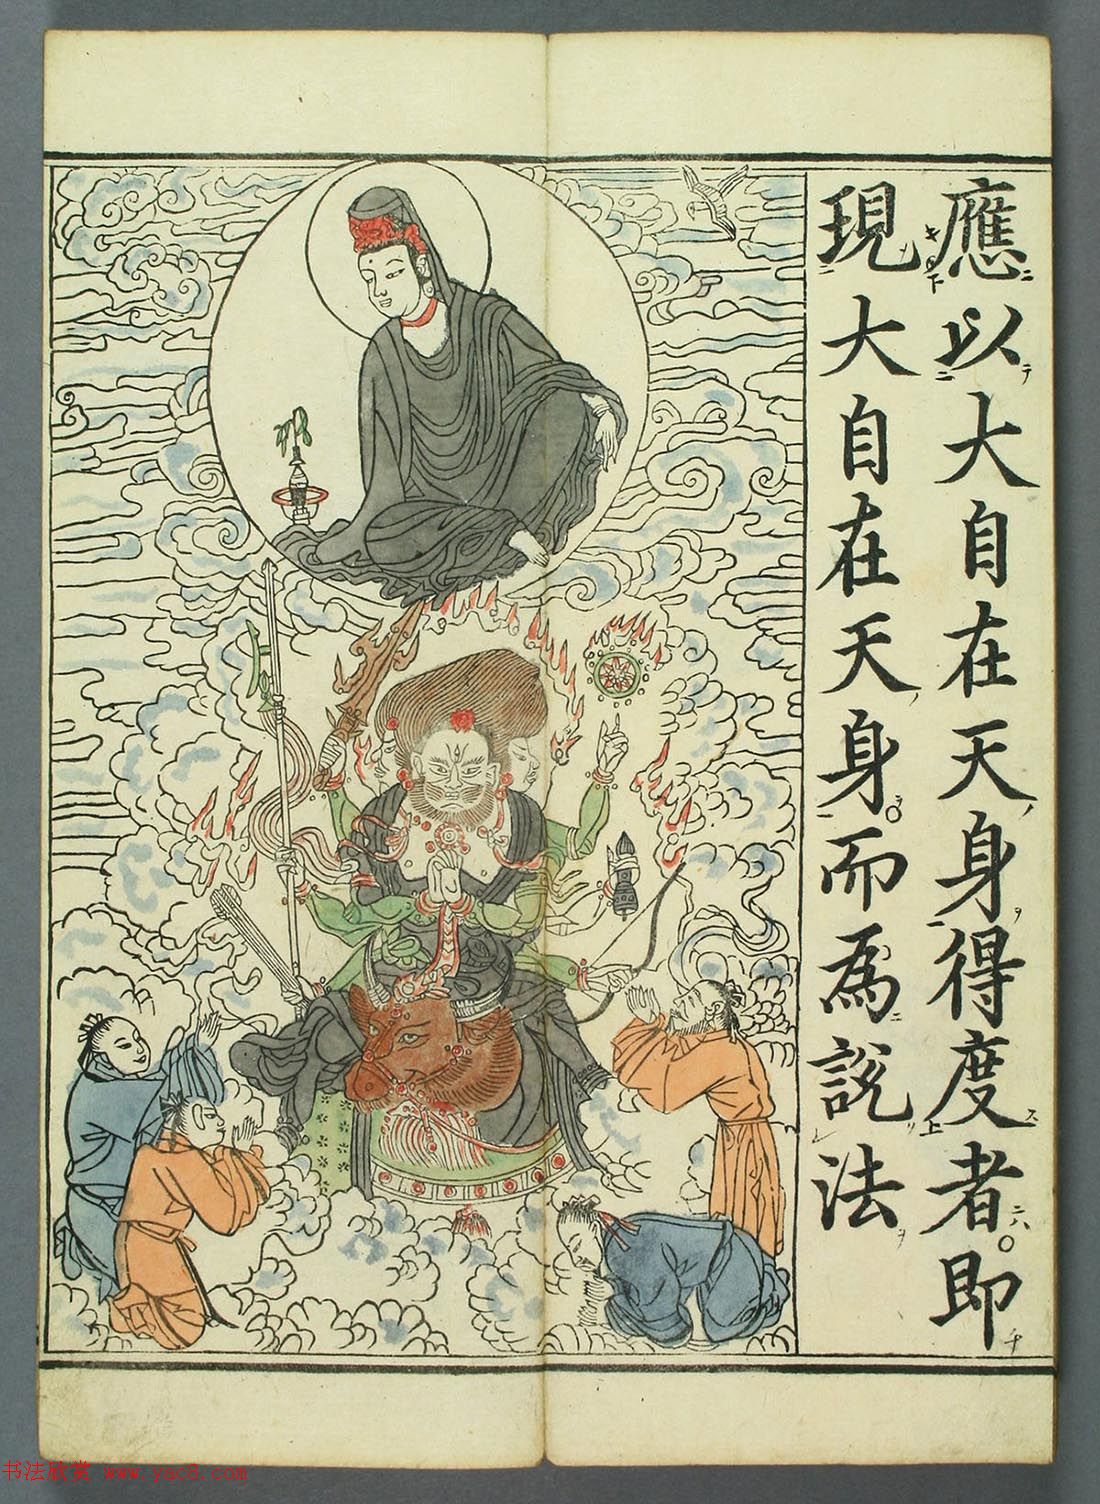 應以大自在天身得度者。即
現大自在天身。而為說法
书法欣赏 www.yac8.com